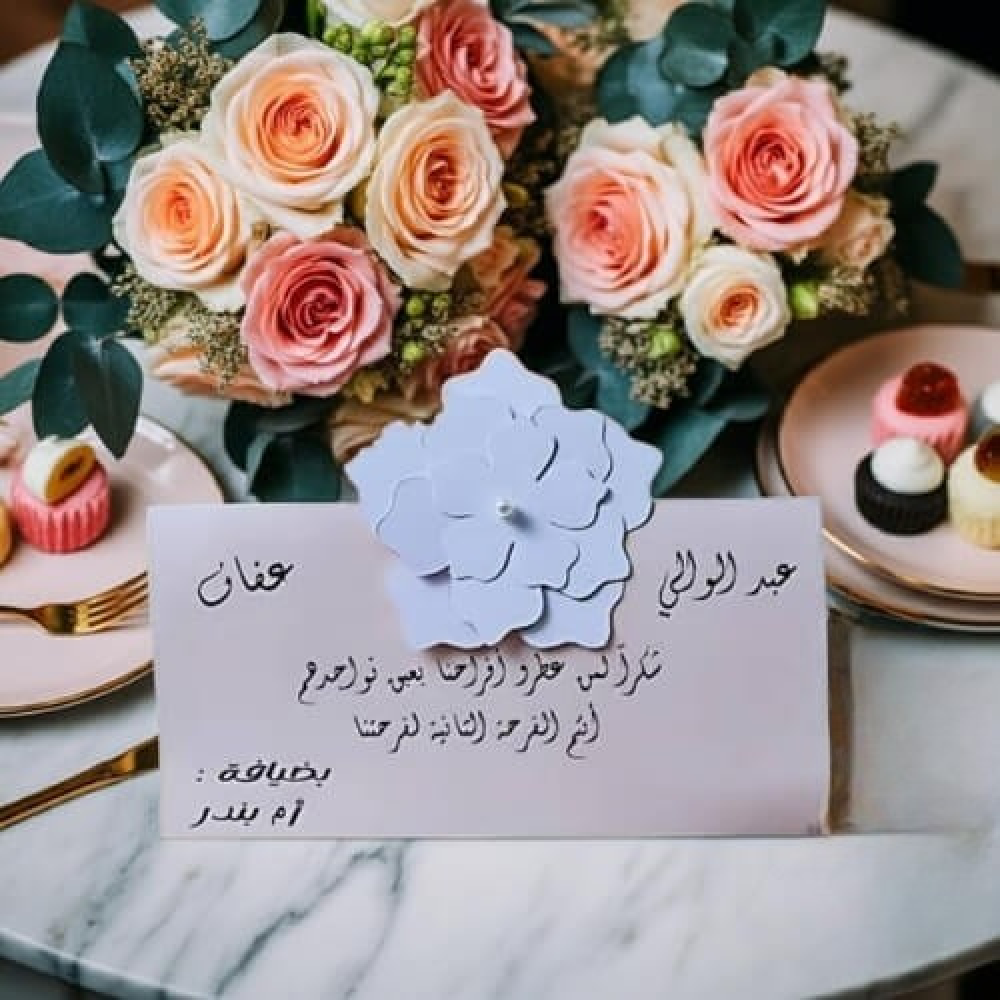 عبد الوالي عفان
شكراً لمن عطرو أفراحنا بعبق تواجدهم
أنتم الفرحة الثانية لفرحتنا
بضيافة :
أم بندر